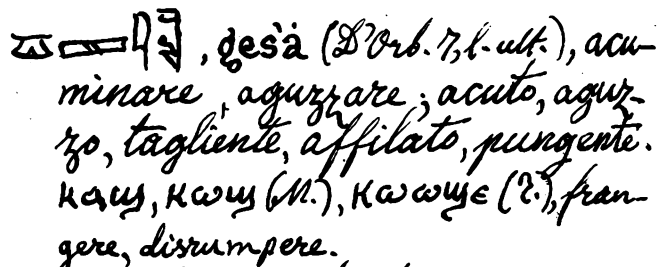 , gesȧ (D'Orb. 7, l. ult.), acu-
minare, aguzzare; acuto, aguz-
zo, tagliente, affilato, pungente.
ⲕⲁϣ, ⲕⲱϣ (M.), ⲕⲱⲱϣⲉ (T.), fran-
gere, disrumpere.